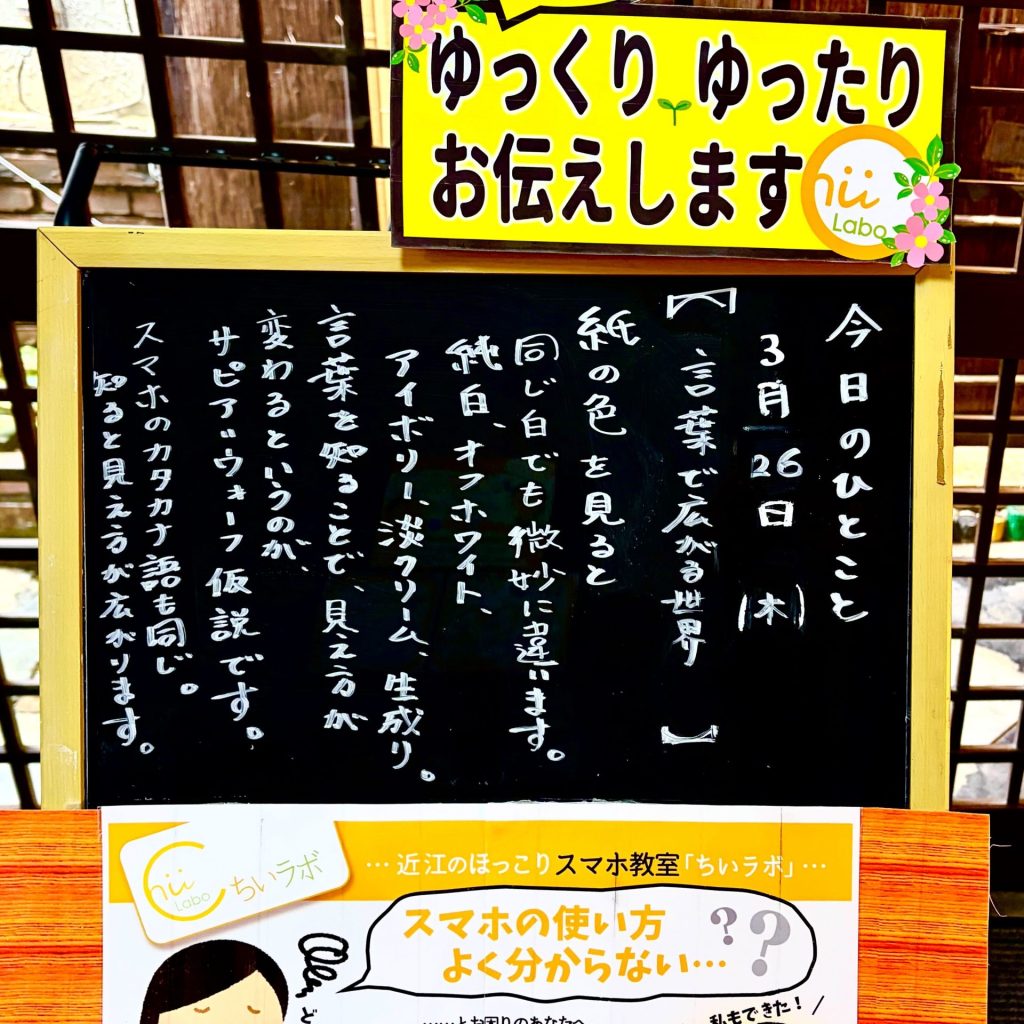 ゆっくり ゆったり
お伝えします
Chii
Labo
今日のひとこと
3月26日(木)
【言葉で広がる世界】
紙の色を見ると
同じ白でも微妙に違います。
純白、オフホワイト、
アイボリー、淡クリーム、生成り。
言葉を知ることで、見え方が
変わるというのが、
サピア゠ウォーフ仮説です。
スマホのカタカナ語も同じ。
知ると見え方が広がります。
Chii
Labo
ちいラボ
… 近江のほっこりスマホ教室「ちいラボ」…
スマホの使い方
よく分からない…
??
ど
……とお困りのあなたへ
私もできた!